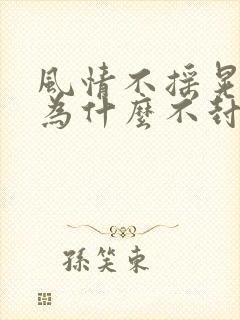 風情不搖晃
為什麼不封
孫笑東